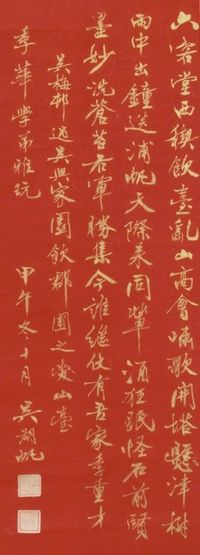 六客堂西禊飲臺亂山高會嘯歌開塔懸津樹
雨中出鐘送浦帆天際來同輩酒狂眠怪石前賢
墨妙洗蒼苔右軍勝集今誰繼仗有吾家季重才
吳梅邨過吳興家園飲郡圃之愛山臺
季華學弟雅玩 甲午冬十月 吳湖帆